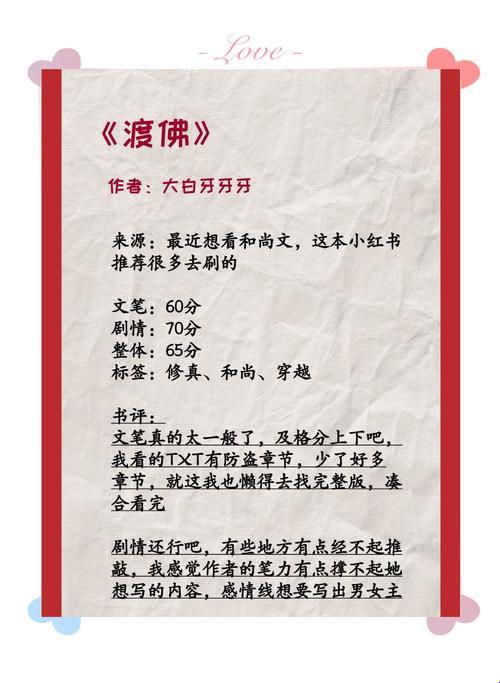 - Love -
《渡佛》
作者：大白牙牙牙
来源：最近想看和尚文，这本小红书
推荐很多去刷的
文笔：60分
剧情：70分
整体：65分
标签：修真、和尚、穿越
书评：
文笔真的太一般了，及格分上下吧，
我看的TXT有防盗章节，少了好多
章节，就这我也懒得去找完整版，凑
合看完
剧情还行吧，有些地方有点经不起推
敲，我感觉作者的笔力有点撑不起她
想写的内容，感情线想要写出男女主